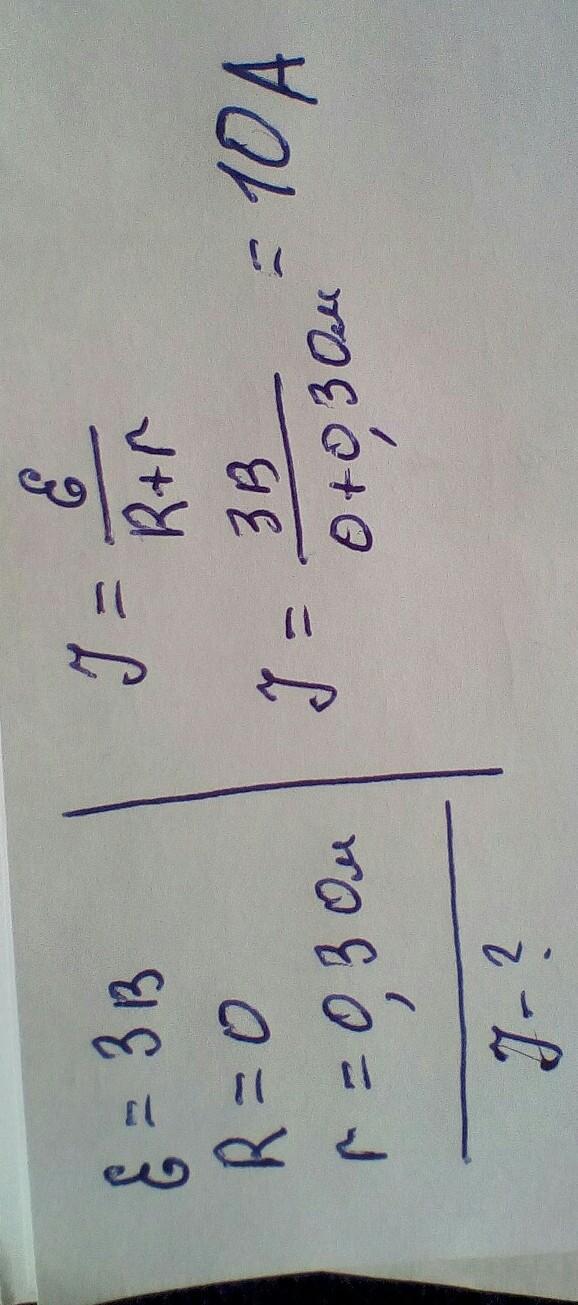 ℰ = 3В
R = 0
r = 0,3 Ом
J - ?
J = ℰ / R+r
J = 3В / 0+0,3 Ом = 10 А